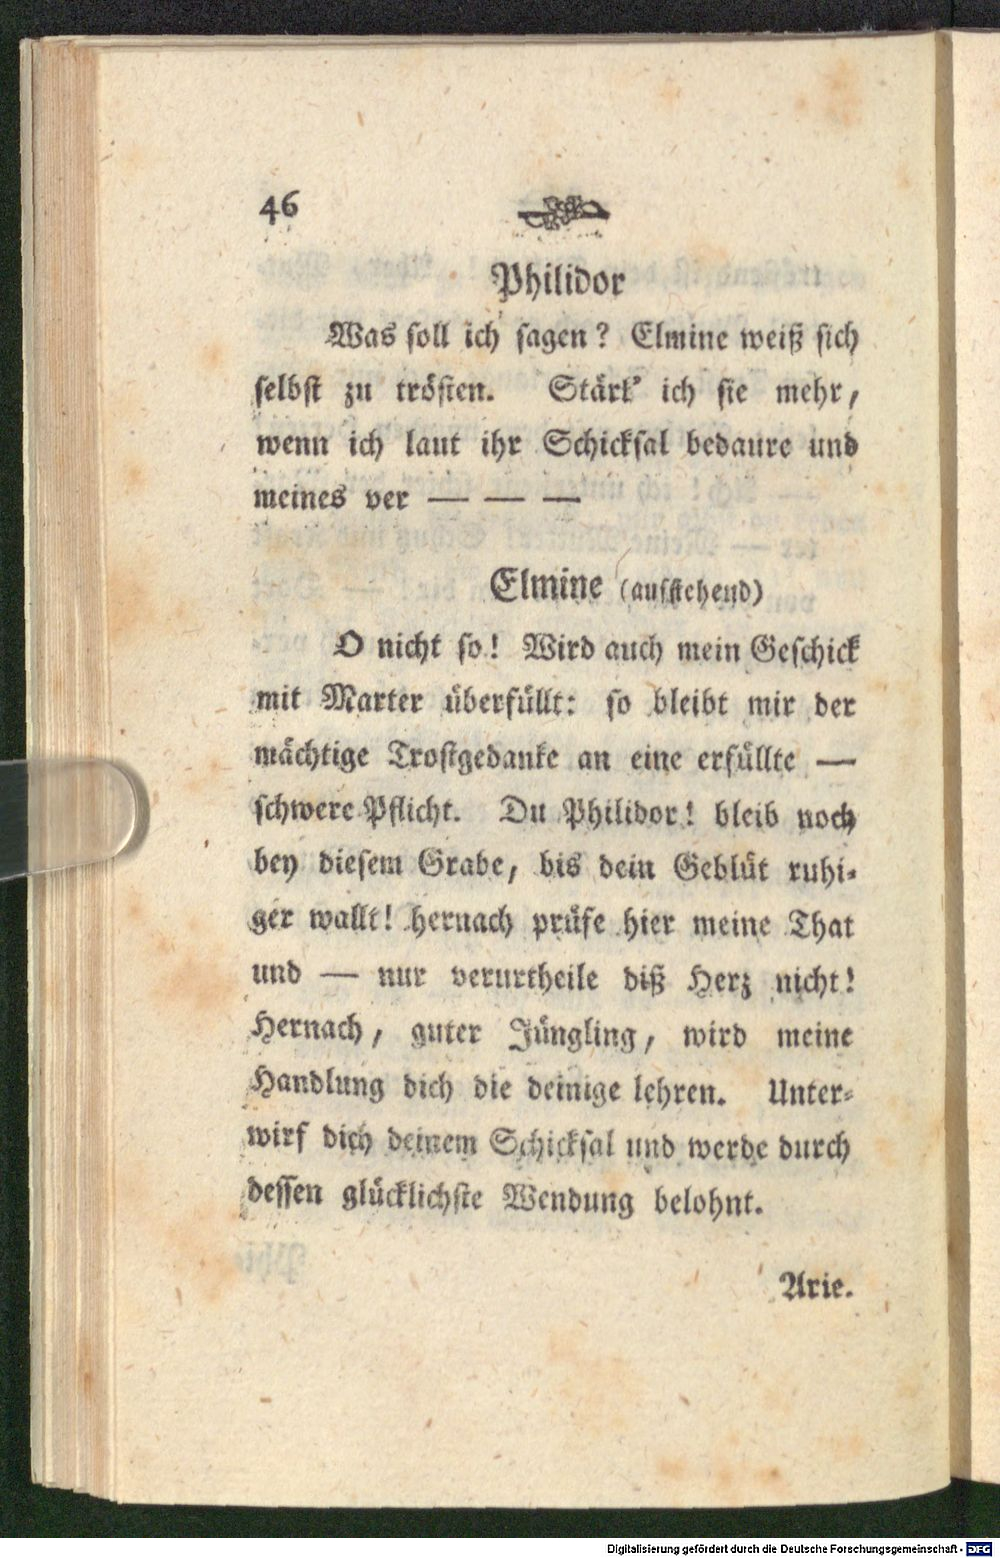 46
Philidor
Was soll ich sagen? Elmine weiß sich
selbst zu trösten. Stärk' ich sie mehr,
wenn ich laut ihr Schicksal bedaure und
meines ver — — —
Elmine (aufstehend)
O nicht so! Wird auch mein Geschick
mit Marter überfüllt: so bleibt mir der
mächtige Trostgedanke an eine erfüllte —
schwere Pflicht. Du Philidor! bleib noch
bey diesem Grabe, bis dein Geblüt ruhi-
ger wallt! hernach prüfe hier meine That
und — nur verurtheile diß Herz nicht!
Hernach, guter Jüngling, wird meine
Handlung dich die deinige lehren. Unter-
wirf dich deinem Schicksal und werde durch
dessen glücklichste Wendung belohnt.
Arie.
Digitalisierung gefördert durch die Deutsche Forschungsgemeinschaft - DFG